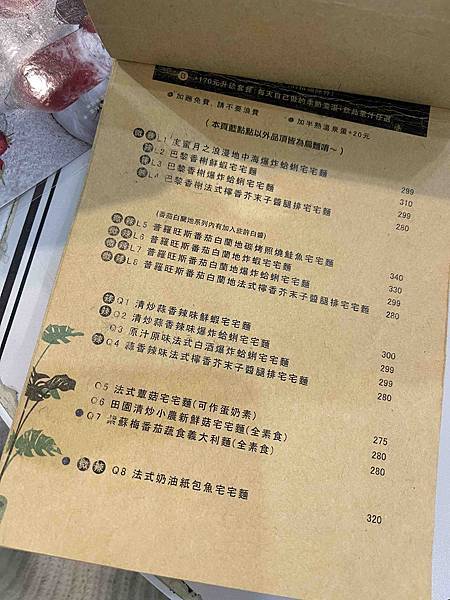 +170元升級套餐(每天自己做的季節濃湯+飲品票汁任選
加麵免費, 請不要浪費
加半熟溫泉蛋+20元
(本頁藍點點以外品項皆為扁麵唷~)
微辣 L1 蜜月之浪漫地中海爆炸蛤蜊宅宅麵 299
辣 L2 巴黎香榭鮮蝦宅宅麵 310
辣 L3 巴黎香榭爆炸蛤蜊宅宅麵 299
L4 巴黎香榭法式檸香芥末子醬腿排宅宅麵 280
(番茄白蘭地系列內有加入些許白醬)
微辣 L5 普羅旺斯番茄白蘭地碳烤照燒鮭魚宅宅麵 340
微辣 L6 普羅旺斯番茄白蘭地炸蝦宅宅麵 330
微辣 L7 普羅旺斯番茄白蘭地爆炸蛤蜊宅宅麵 299
微辣 L8 普羅旺斯番茄白蘭地法式檸香芥末子醬腿排宅宅麵 280
辣 Q1 清炒蒜香辣味鮮蝦宅宅麵 300
辣 Q2 清炒蒜香辣味爆炸蛤蜊宅宅麵 299
Q3 原汁原味法式白酒爆炸蛤蜊宅宅麵 299
辣 Q4 蒜香辣味法式檸香芥末子醬腿排宅宅麵 280
Q5 法式蕈菇宅宅麵(可作蛋奶素) 275
Q6 田園清炒小農新鮮菇宅宅麵(全素食) 280
Q7 紫蘇梅番茄蔬食義大利麵(全素食) 280
微辣 Q8 法式奶油紙包魚宅宅麵 320